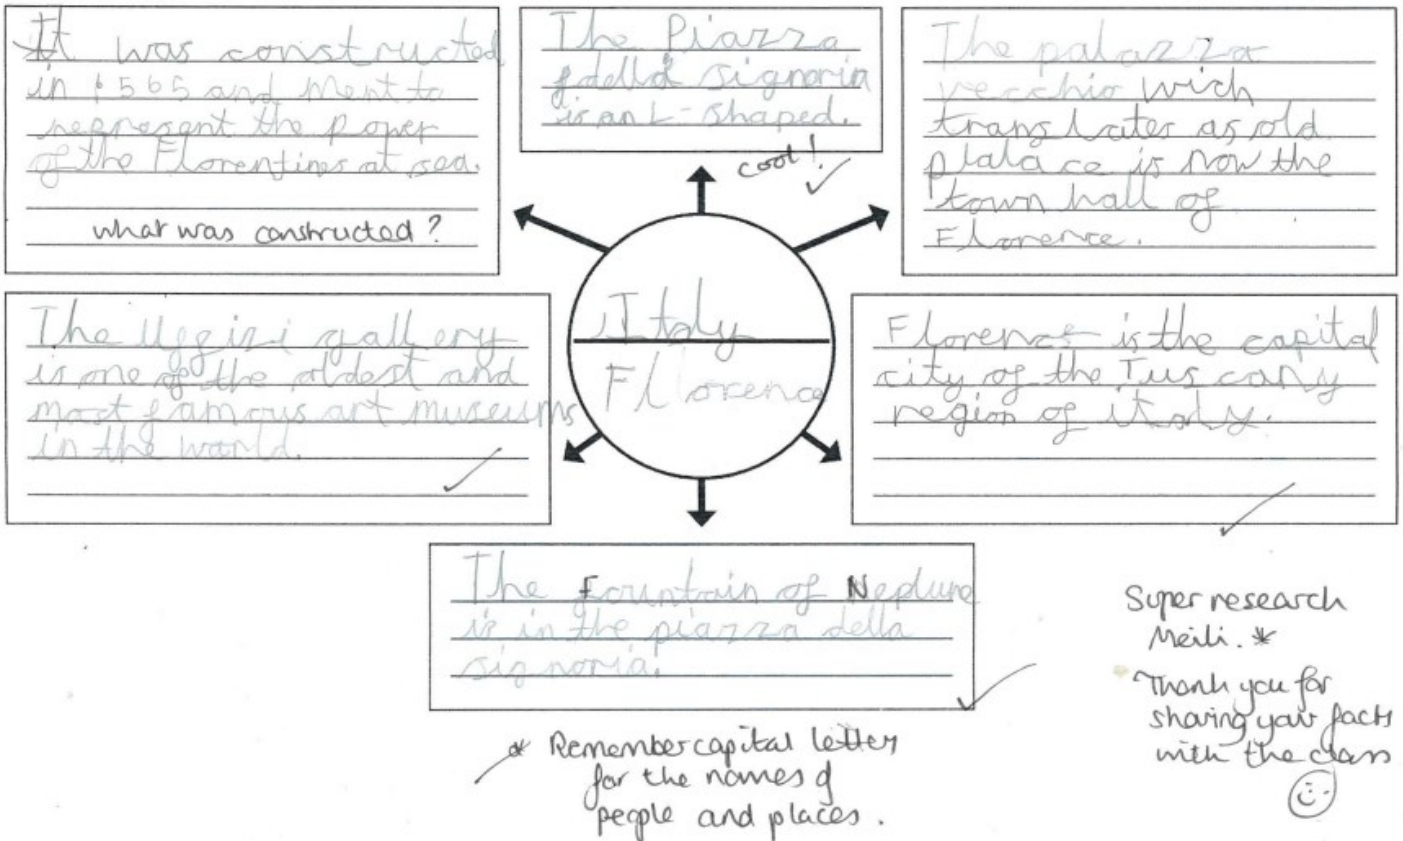 It was constructed
in 1565 and ment to
represent the power
of the Florentines at sea.
what was constructed?
The Piazza
della signoria
is an L-shaped.
cool!
The palazza
vecchio wich
translates as old
palace is now the
town hall of
Florence.
Italy
Florence
The Uffizi gallery
is one of the oldest and
most famous art museums
in the world.
Florence is the capital
city of the Tuscany
region of italy.
The Fountain of Neptune
is in the piazza della
signoria.
* Remember capital letters
for the names of
people and places.
Super research
Meili. *
Thank you for
sharing your facts
with the class